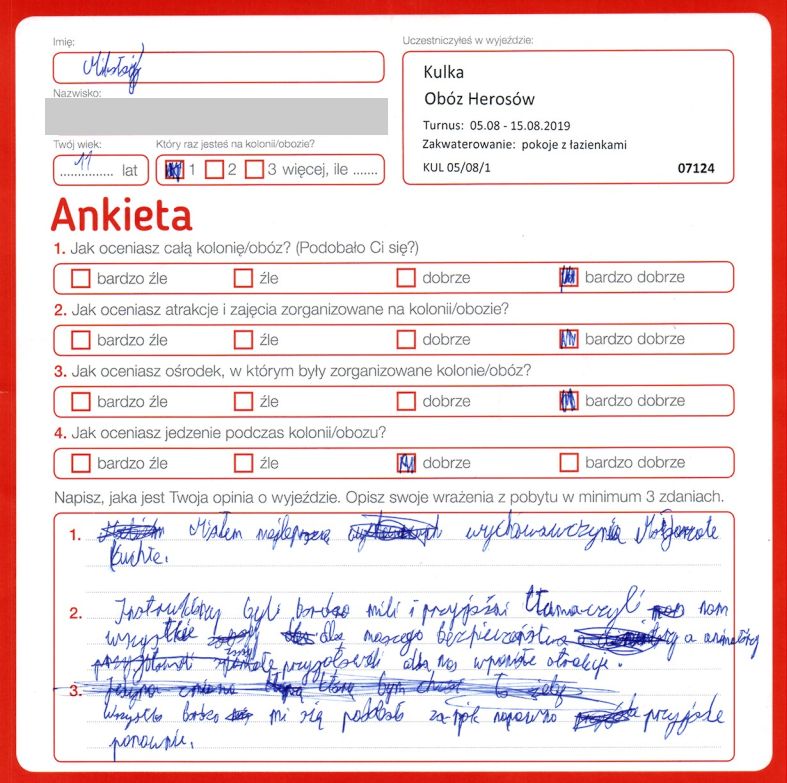 Imię:
Mikołaj
Nazwisko:
Twój wiek:
11 lat
Który raz jesteś na kolonii/obozie?
1 2 3 więcej, ile .......
Uczestniczyłeś w wyjeździe:
Kulka
Obóz Herosów
Turnus: 05.08 - 15.08.2019
Zakwaterowanie: pokoje z łazienkami
KUL 05/08/1 07124
Ankieta
1. Jak oceniasz całą kolonię/obóz? (Podobało Ci się?)
bardzo źle źle dobrze bardzo dobrze
2. Jak oceniasz atrakcje i zajęcia zorganizowane na kolonii/obozie?
bardzo źle źle dobrze bardzo dobrze
3. Jak oceniasz ośrodek, w którym były zorganizowane kolonie/obóz?
bardzo źle źle dobrze bardzo dobrze
4. Jak oceniasz jedzenie podczas kolonii/obozu?
bardzo źle źle dobrze bardzo dobrze
Napisz, jaka jest Twoja opinia o wyjeździe. Opisz swoje wrażenia z pobytu w minimum 3 zdaniach.
1. Miałem najlepszą wychowawczynię Małgorzate
Kuchte.
2. Instruktorzy byli bardzo mili i przyjaźni tłumaczyli nam
wszystkie dla naszego bezpieczeństwa a animatorzy
przygotowali dla nas wspaniałe atrakcje.
3. Jedyna zmiana którą bym chciał to
wszystko bardzo mi się podobało za rok napewno przyjadę
ponownie.